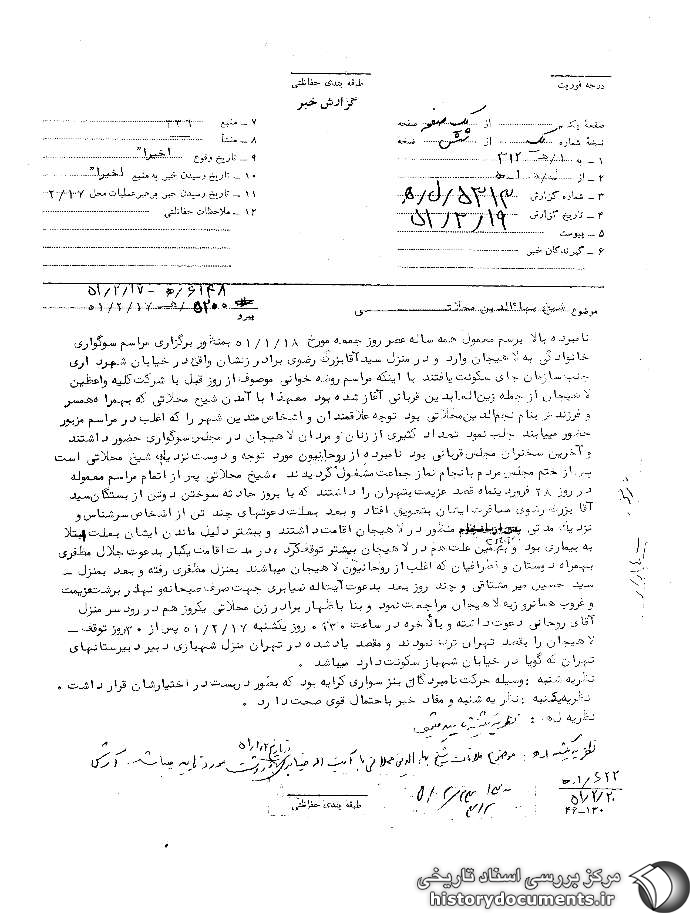 درجه فوریت
طبقه بندی حفاظتی
گزارش خبر
صفحه یک از یک صفحه
نسخه شماره یک از شش نسخه
۱ ـ به ۳۱۲
۲ ـ از
۳ ـ شماره گزارش
۴ ـ تاریخ گزارش ۵۱/۲/۱۹
۵ ـ پیوست
۶ ـ گیرندگان خبر
۷ ـ منبع ۳۳۶
۸ ـ منشأ
۹ ـ تاریخ وقوع اخیرا"
۱۰ ـ تاریخ رسیدن خبر به منبع اخیرا"
۱۱ ـ تاریخ رسیدن خبر برهبر عملیات محل ۲/۱۷
۱۲ ـ ملاحظات حفاظتی
۵۱/۲/۱۷ ـ ه/۶۱۴۸
موضوع شیخ بهاالدین محلاتی
پیرو ۵۲۰۰/ه ـ ۵۱/۲/۱۷
نامبرده بالا برسم معمول همه ساله عصر روز جمعه مورخ ۵۱/۱/۱۸ بمنظور برگزاری مراسم سوگواری
خانوادگی به لاهیجان وارد و در منزل سید آقابزرگ رضوی برادر زنشان واقع در خیابان شهرداری
جنب سازمان جای سکونت یافتند با اینکه مراسم روضه خوانی موصوف از روز قبل با شرکت کلیه واعظین
لاهیجان از جمله زین العابدین قربانی آغاز شده بود معهذا با آمدن شیخ محلاتی که بهمراه همسر
و فرزندش بنام نجم الدین محلاتی بود توجه علاقمندان و اشخاص متدین شهر را که اغلب در مراسم مزبور
حضور مییابند جلب نمود تعداد کثیری از زنان و مردان لاهیجان در مجلس سوگواری حضور داشتند
و آخرین سخنران مجلس قربانی بود نامبرده از روحانیون مورد توجه و دوست نزدیک شیخ محلاتی است
پس از ختم مجلس مردم با انجام نماز جماعت مشغول گردیدند . شیخ محلاتی پس از اتمام مراسم معموله
در روز ۲۸ فروردینماه قصد عزیمت بتهران را داشتند که با بروز حادثه سوختن دوتن از بستگان سید
آقا بزرگ رضوی مسافرت ایشان بتعویق افتاد و بعد بعلت دعوتهای چند تن از اشخاص سرشناس و
نزدیک مدتی منظور در لاهیجان اقامت داشتند و بیشتر دلیل ماندن ایشان بعلت ابتلا
به بیماری بود و بهمین علت هم در لاهیجان بیشتر توقف کرد . در مدت اقامت یکبار بدعوت جلال مظفری
بهمراه دوستان و اطرافیان که اغلب از روحانیون لاهیجان میباشند بمنزل مظفری رفته و بعد بمنزل ـ
سید حسین میر مشتاقی و چند روز بعد بدعوت آیت اله ضیابری جهت صرف صبحانه و نهار برشت عزیمت
و غروب همانروز به لاهیجان مراجعت نمود و بنا باظهار برادر زن محلاتی یکروز هم در رودسر منزل
آقای روحانی دعوت داشته و بالاخره در ساعت ۰۶۳۰ روز یکشنبه ۵۱/۲/۱۷ پس از ۳۰ روز توقف ـ
لاهیجان را بقصد تهران ترک نمودند و مقصد یادشده در تهران منزل شهبازی دبیر دبیرستانهای
تهران که گویا در خیابان شهباز سکونت دارد میباشد .
نظریه شنبه : وسیله حرکت نامبردگان بنز سواری کرایه بود که بطور دربست در اختیارشان قرار داشت .
نظریه یکشنبه : نظریه شنبه و مفاد خبر باحتمال قوی صحت دارد .
طبقه بندی حفاظتی
۵۱/۲/۲۰
۴۶-۱۳۰
مرکز بررسی اسناد تاریخی
historydocuments.ir